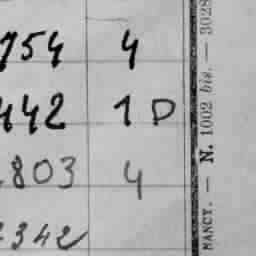 754 4
442 1 D
803 4
2342
NANCY. — N. 1002 bis. — 3028